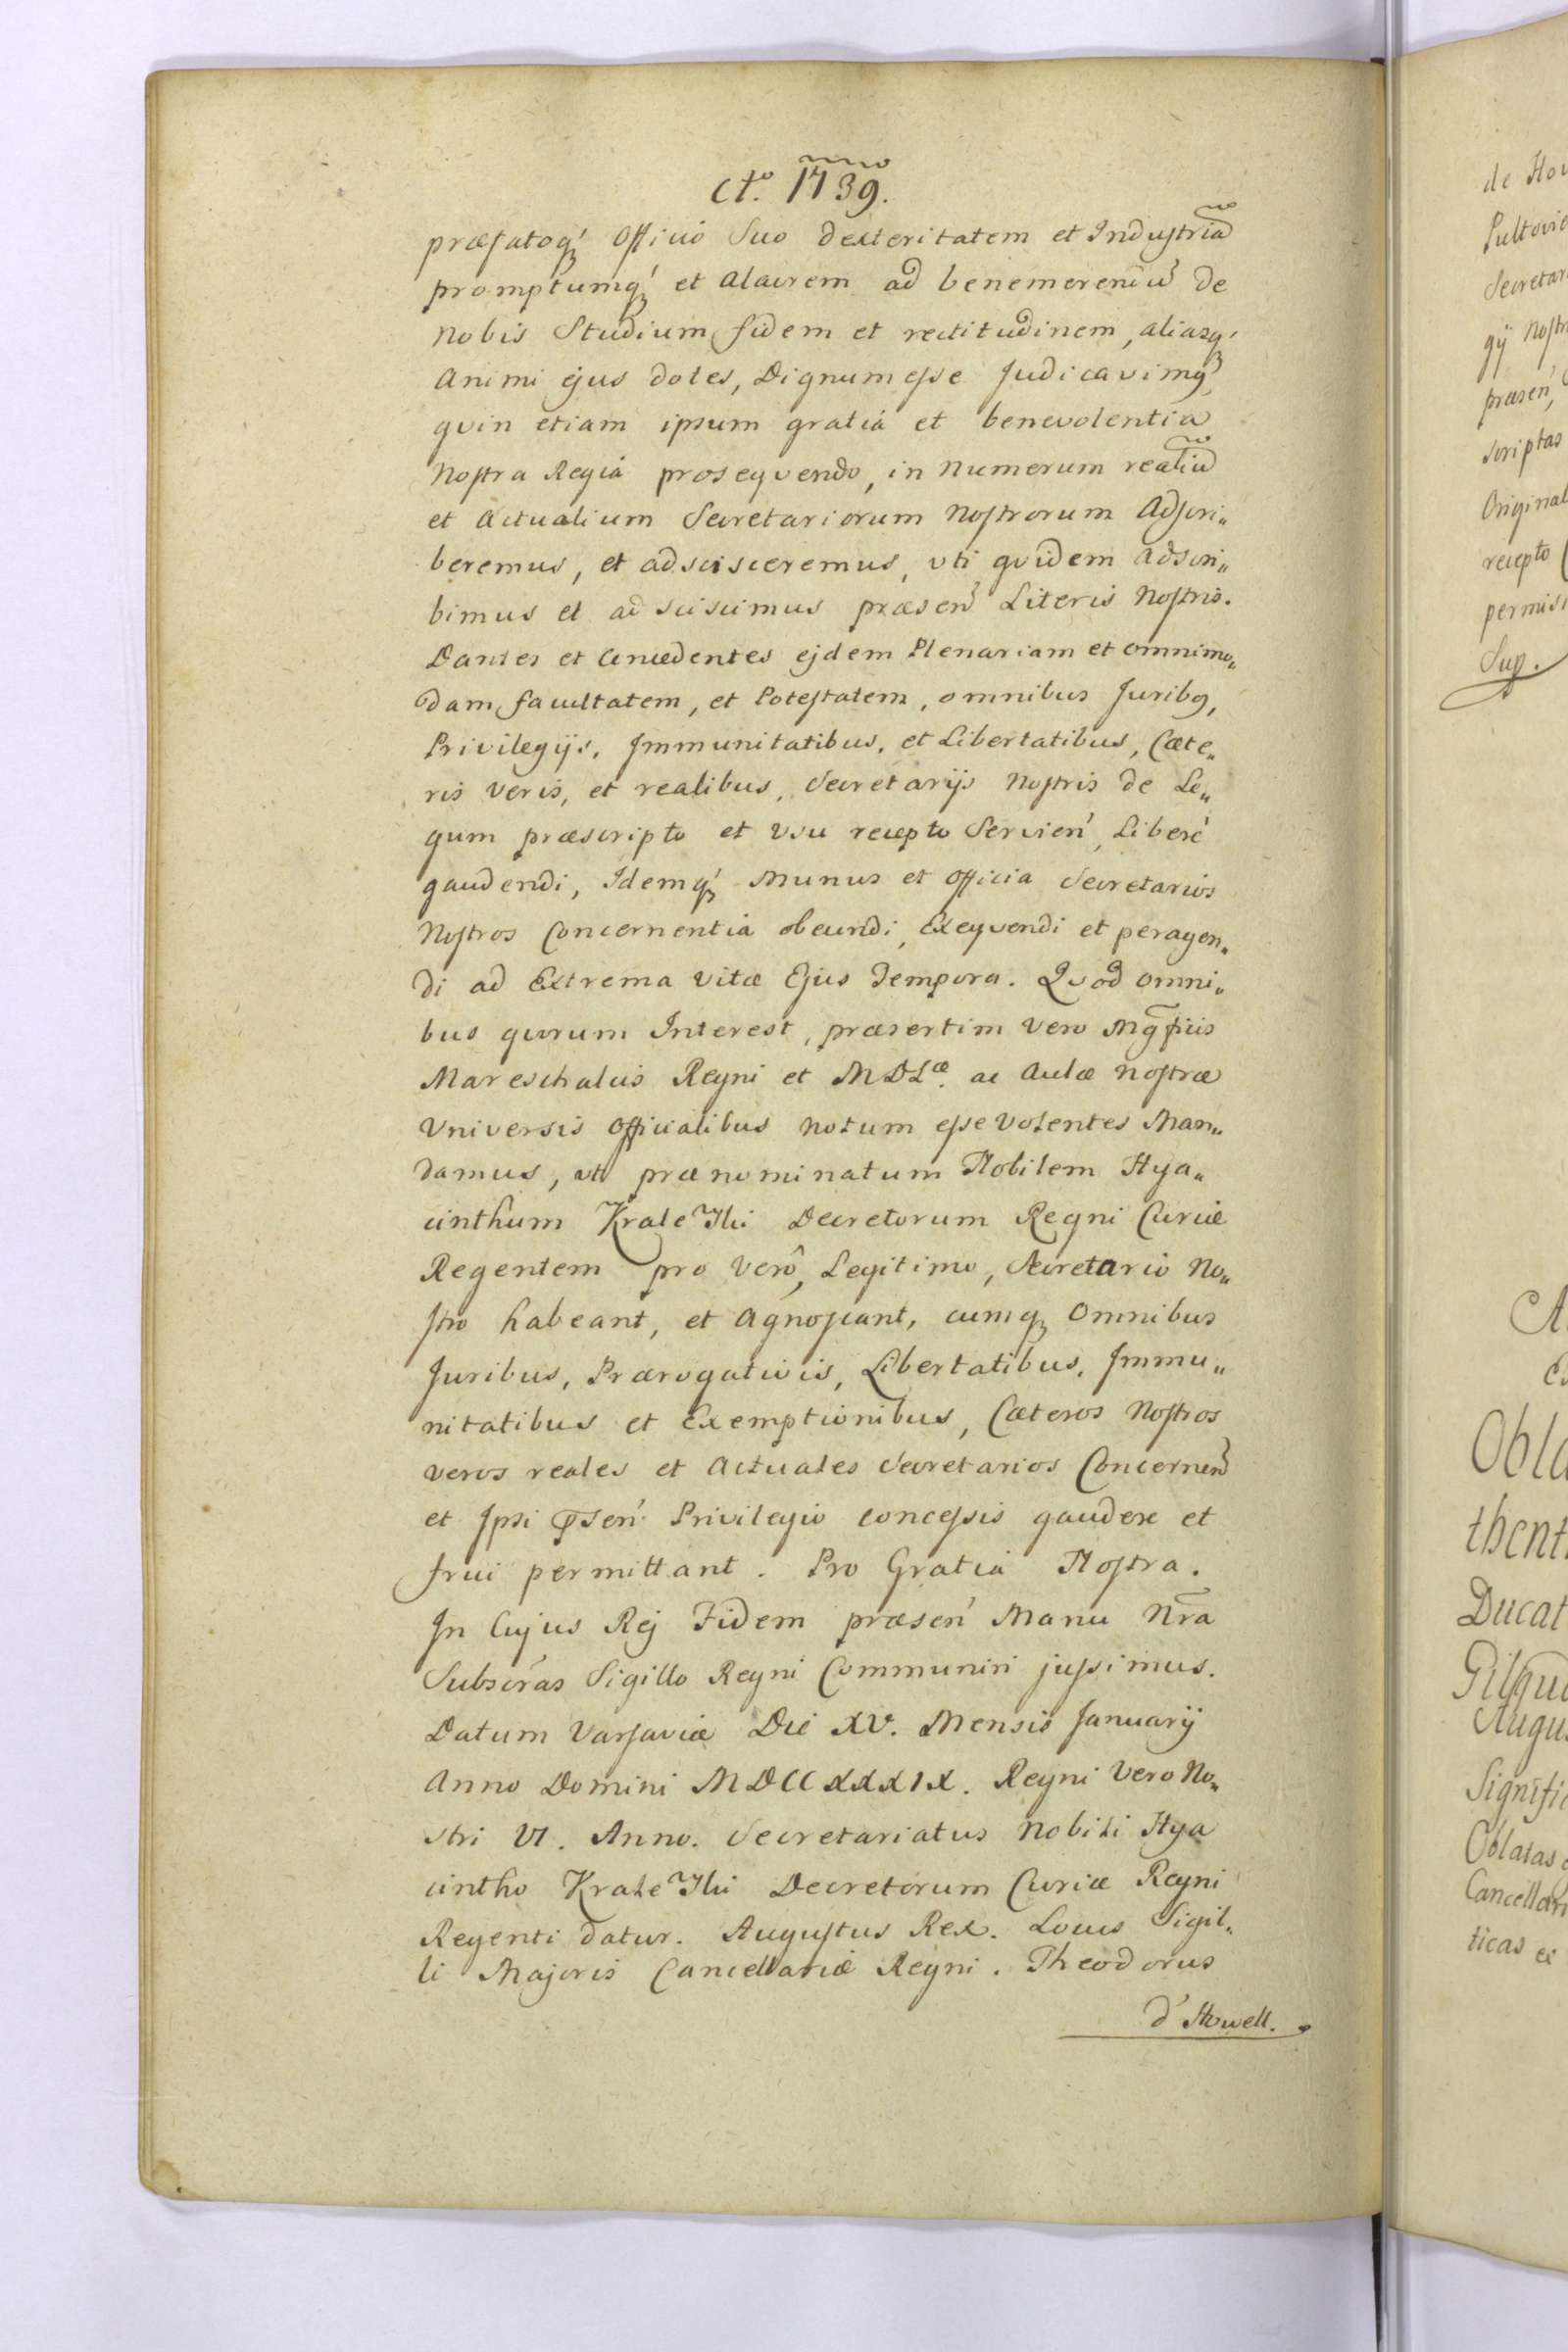 Ao. 1739.
præfatoq́; Officio Suo dexteritatem et Industriã
promptumq́; et alacrem ad benemerendũ de
nobis Studium, fidem et rectitudinem, aliasq́;
animi ejus dotes, Dignum esse Judicavimq;
qvin etiam ipsum gratiâ et benevolentia
Nostra Regiâ proseqvendo, in Numerum realiũ
et actualium Secretariorum Nostrorum Adscri„
beremus, et adscisceremus, uti qvidem adscri„
bimus et adsciscimus præsen̄ Literis Nostris.
Dantes et Concedentes ejdem Plenariam et omnimo„
dam facultatem, et Potestatem, omnibus Juribq,
Privilegijs, Immunitatibus, et Libertatibus, Cæte„
ris veris, et realibus, Secretarijs Nostris de Le„
gum præscripto et usu recepto Servien̄, Liberè
gaudendi, Idemq́; Munus et Officia Secretarios
Nostros Concernentia obeundi, Exeqvendi et peragen„
di ad Extrema vitæ Ejus Tempora. Qvod omni„
bus qvorum Interest, præsertim vero Mg̃ficis
Mareschalcis Regni et MDLæ. ac Aulæ nostræ
Universis Officialibus notum esse volentes Man„
damus, ut prænominatum Nobilem Hya„
cinthum Decretorum Regni Curiæ
Regentem pro vero, Legitimo, Secretario No„
stro habeant, et agnoscant, cumq; Omnibus
Juribus, Prærogativis, Libertatibus, Immu„
nitatibus et Exemptionibus, Cæteros Nostros
veros reales et Actuales Secretarios Concernen̄
et Ipsi p̄sen̄ Privilegio concessis gaudere et
frui permittant. Pro Gratia Nostra.
In Cujus Rej Fidem præsen̄ Manu Nr̄a
Subscr̄as Sigillo Regni Communiri jussimus.
Datum Varsaviæ Die XV. Mensis Januarij
Anno Domini MDCCXXXIX. Regni Vero No„
stri VI. Anno. Secretariatus Nobili Hya
cintho Decretorum Curiæ Regni
Regenti datur. Augustus Rex. Locus Sigil„
li Majoris Cancellariæ Regni. Theodorus
d' Howell.
de
Pultovie
Secretar
gij Nostr
præsen̄,
scriptas
Original
recepto
permis
Sup.
Obla
thent
Ducat
Augu
Signific
Oblatas
Cancellar
ticas ex